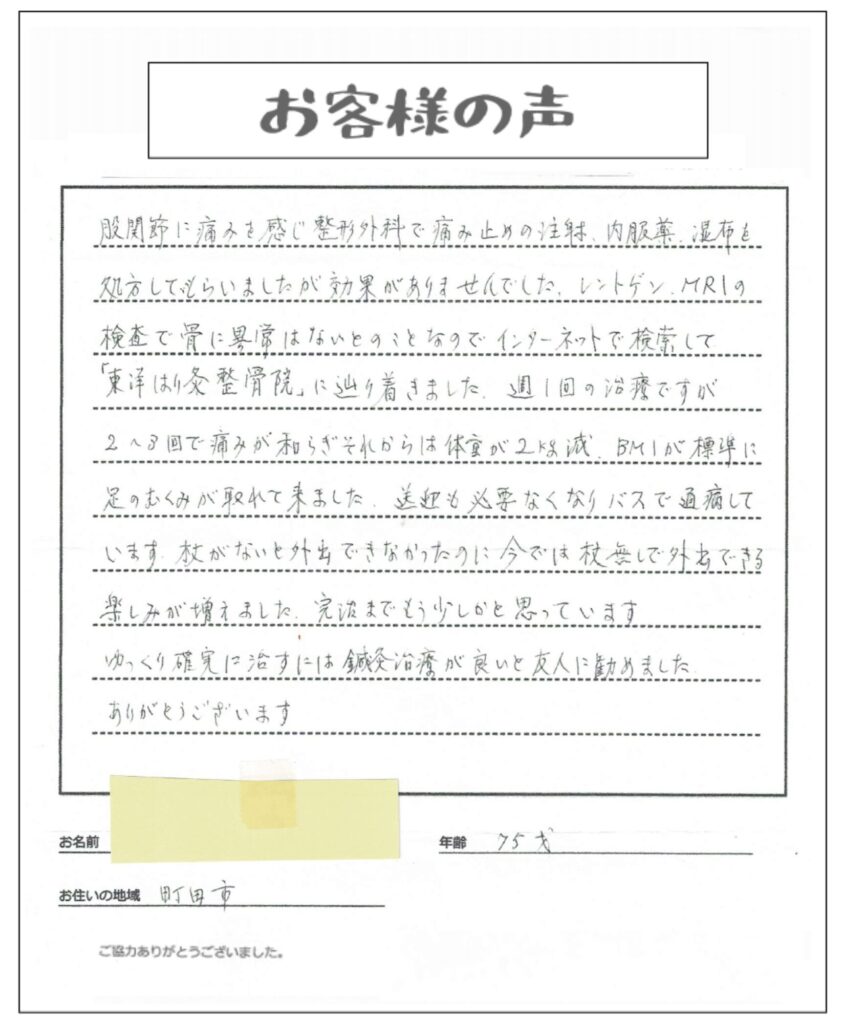 お客様の声
股関節に痛みを感じ整形外科で痛み止めの注射、内服薬、湿布を
処方してもらいましたが効果がありませんでした。レントゲン、MRIの
検査で骨に異常はないとのことなのでインターネットで検索して
「東洋はり灸整骨院」に辿り着きました。週1回の治療ですが
2〜3回で痛みが和らぎそれからは体重が2kg減、BMIが標準に
足のむくみが取れて来ました。送迎も必要なくなりバスで通病して
います。杖がないと外出できなかったのに今では杖無しで外出できる
楽しみが増えました。完治までもう少しかと思っています
ゆっくり確実に治すには鍼灸治療が良いと友人に勧めました
ありがとうございます
お名前
年齢 75才
お住いの地域 町田市
ご協力ありがとうございました。